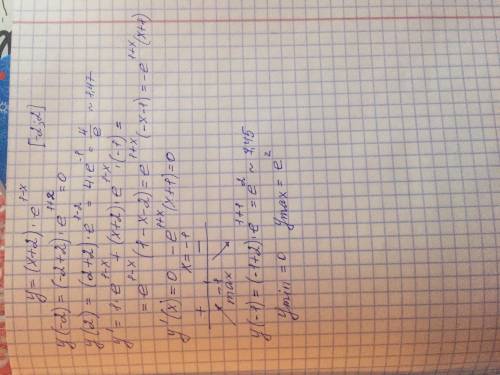 y=(x+2)·e^{1-x} [-2;2]
y(-2)=(-2+2)·e^{1+2}=0
y(2)=(2+2)·e^{1-2}=4·e^{-1}=4/e≈1,47
y'=1·e^{1-x}+(x+2)·e^{1-x}·(-1)=
=e^{1-x}(1-x-2)=e^{1+x}(-x-1)=-e^{1+x}(x+1)
y'(x)=0 -e^{1+x}(x+1)=0
x=-1
+ -
-1
max
y(-1)=(-1+2)·e^{1+1}=e^{2}
ymin=0 ymax=e^{2}